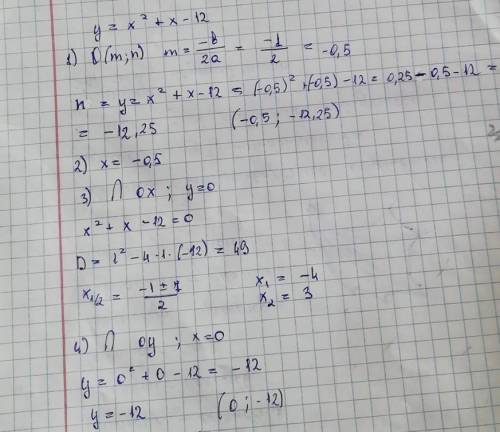 y = x² + x - 12
1) O(m;n) m = -b/2a = -1/2 = -0,5
n = y = x² + x - 12 = (-0,5)² + (-0,5) - 12 = 0,25 - 0,5 - 12 =
= -12,25 (-0,5 ; -12,25)
2) x = -0,5
3) ∩ ox ; y=0
x² + x - 12 = 0
D = 1² - 4·1·(-12) = 49
x₁/₂ = -1 ± 7 / 2 x₁ = -4
x₂ = 3
4) ∩ oy ; x=0
y = 0² + 0 - 12 = -12
y = -12 (0 ; -12)